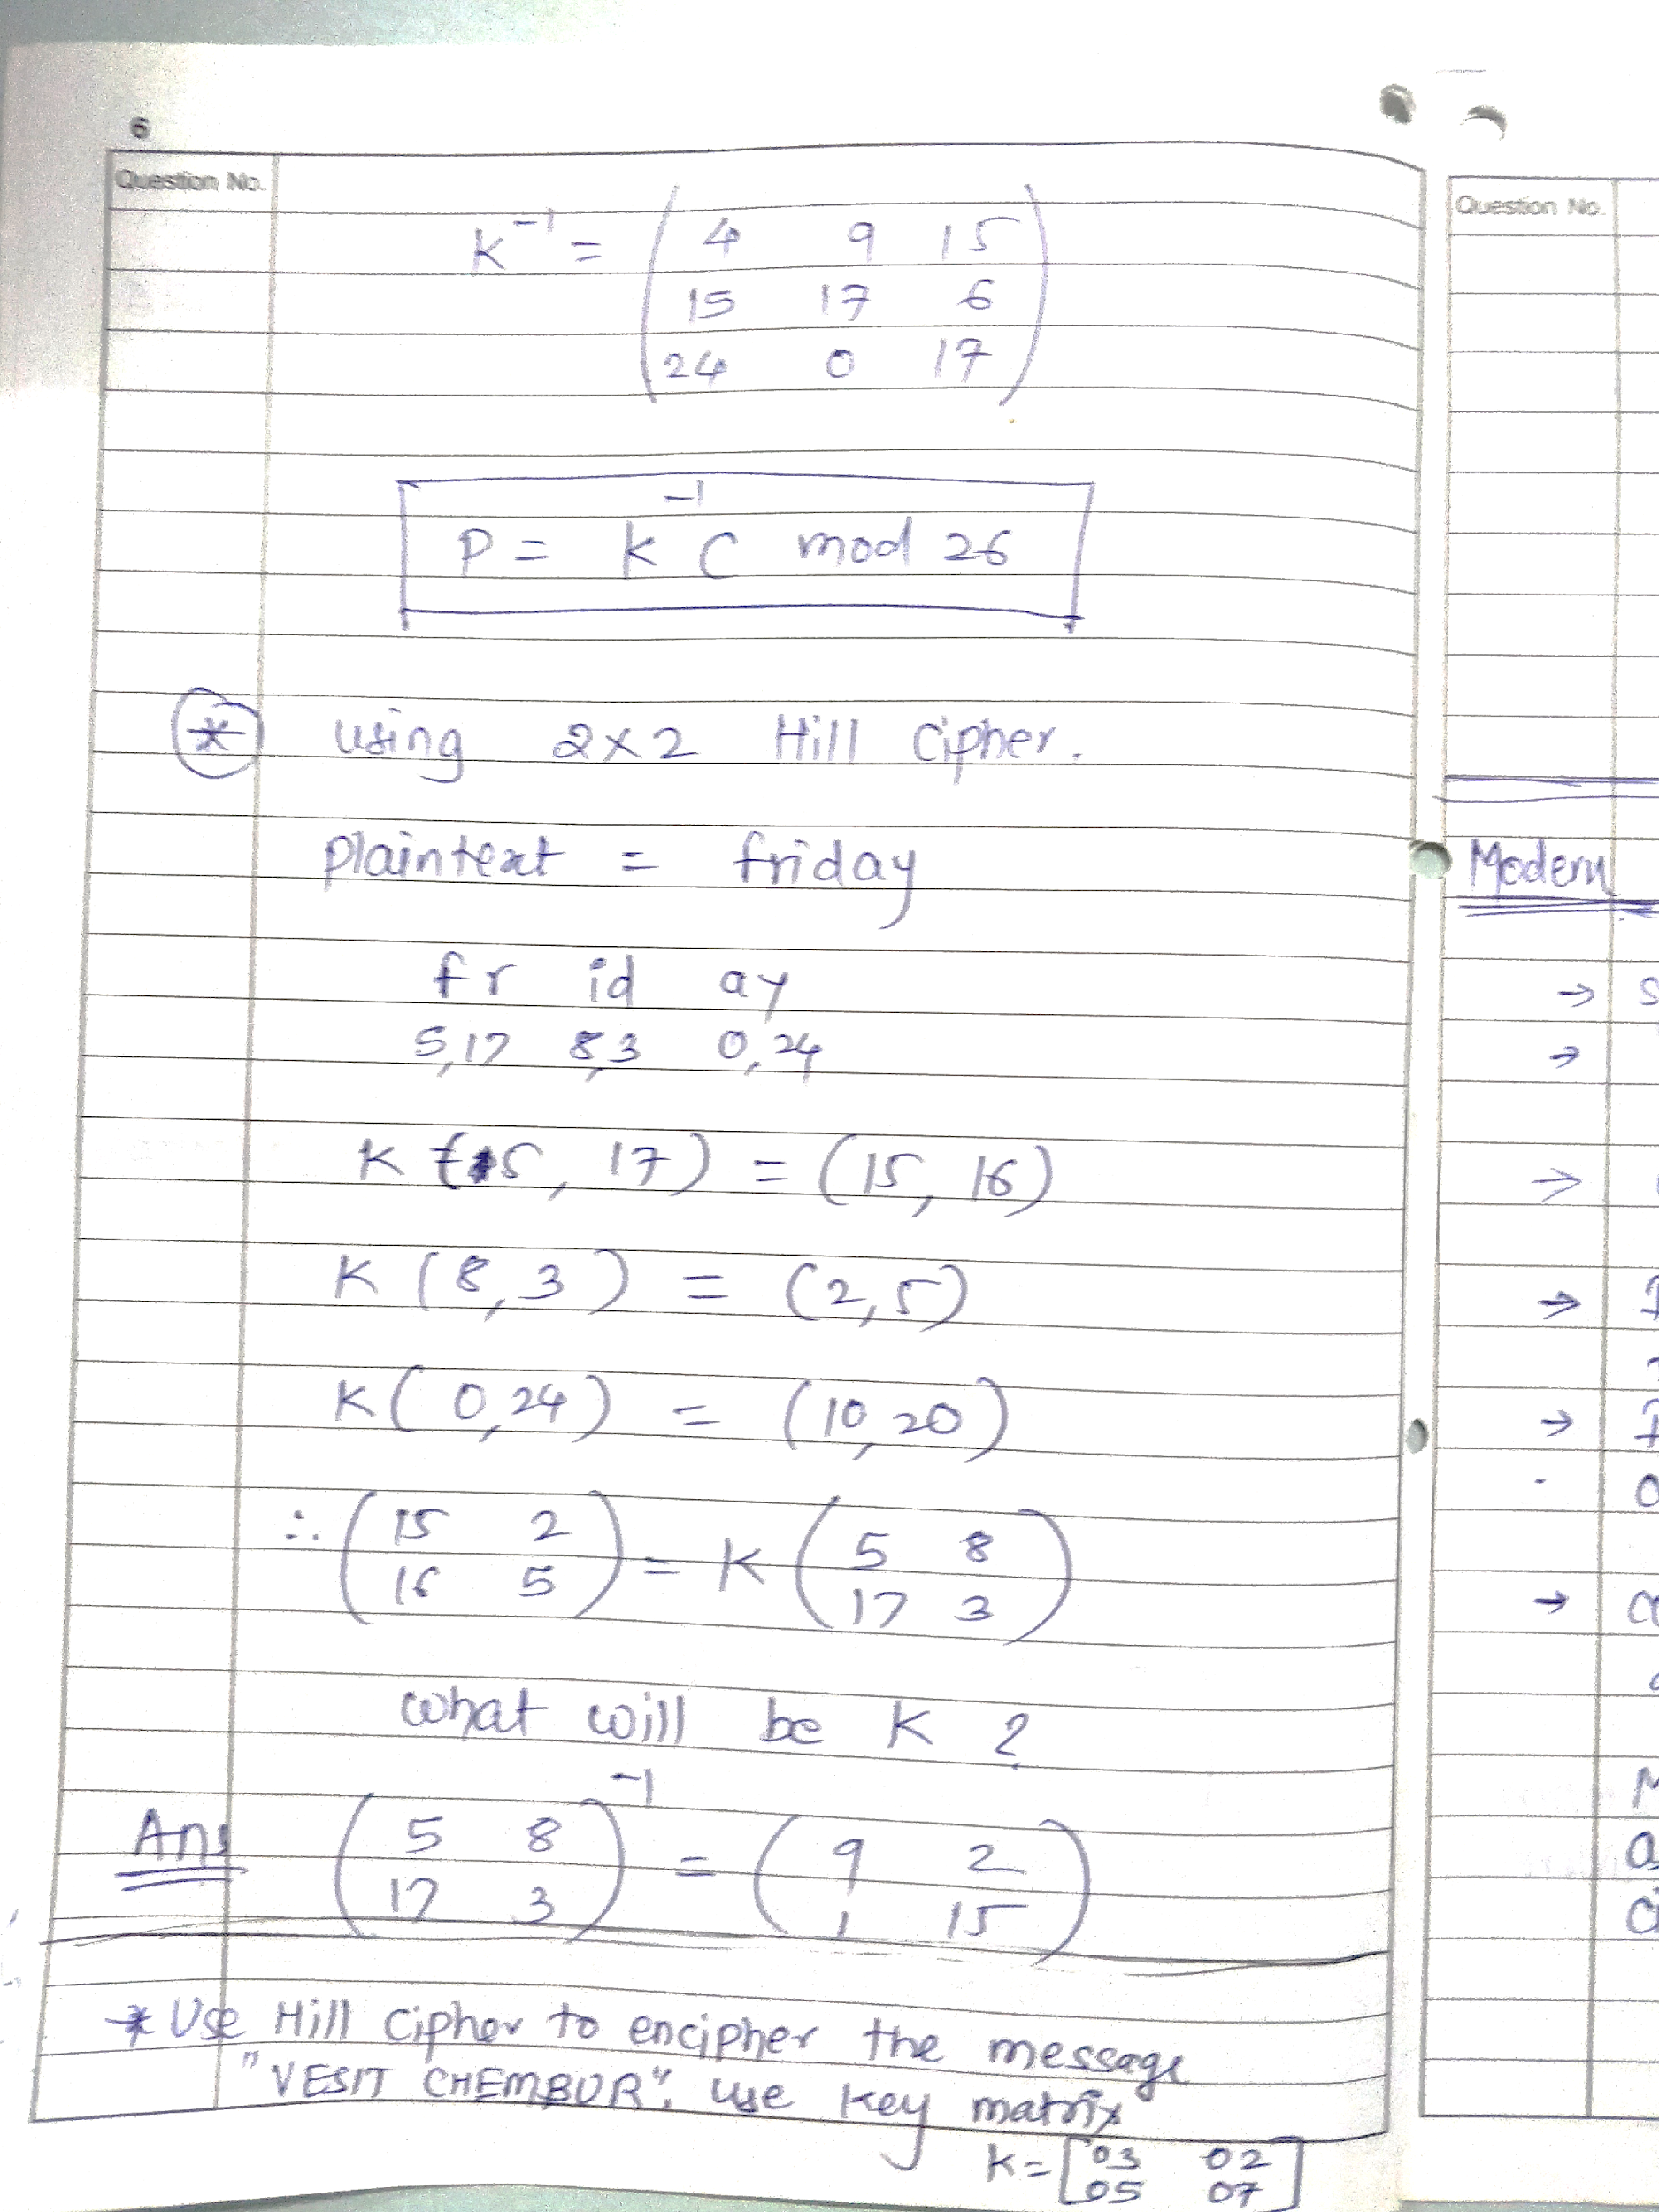 6
Question No.
K⁻¹ = ( 4 9 15
15 17 6
24 0 17 )
P = K⁻¹ C mod 26
* using 2×2 Hill Cipher.
plaintext = friday
fr id ay
5,17 8,3 0,24
K (5, 17) = (15, 16)
K (8,3) = (2,5)
K (0,24) = (10,20)
∴ ( 15 2
16 5 ) = K ( 5 8
17 3 )
what will be K ?
Ans ( 5 8
17 3 )⁻¹ = ( 9 2
1 15 )
* Use Hill Cipher to encipher the message
"VESIT CHEMBUR". use key matrix
K = [ 03 02
05 07 ]
Question No.
Modern
→ S
→
→
→
→
→